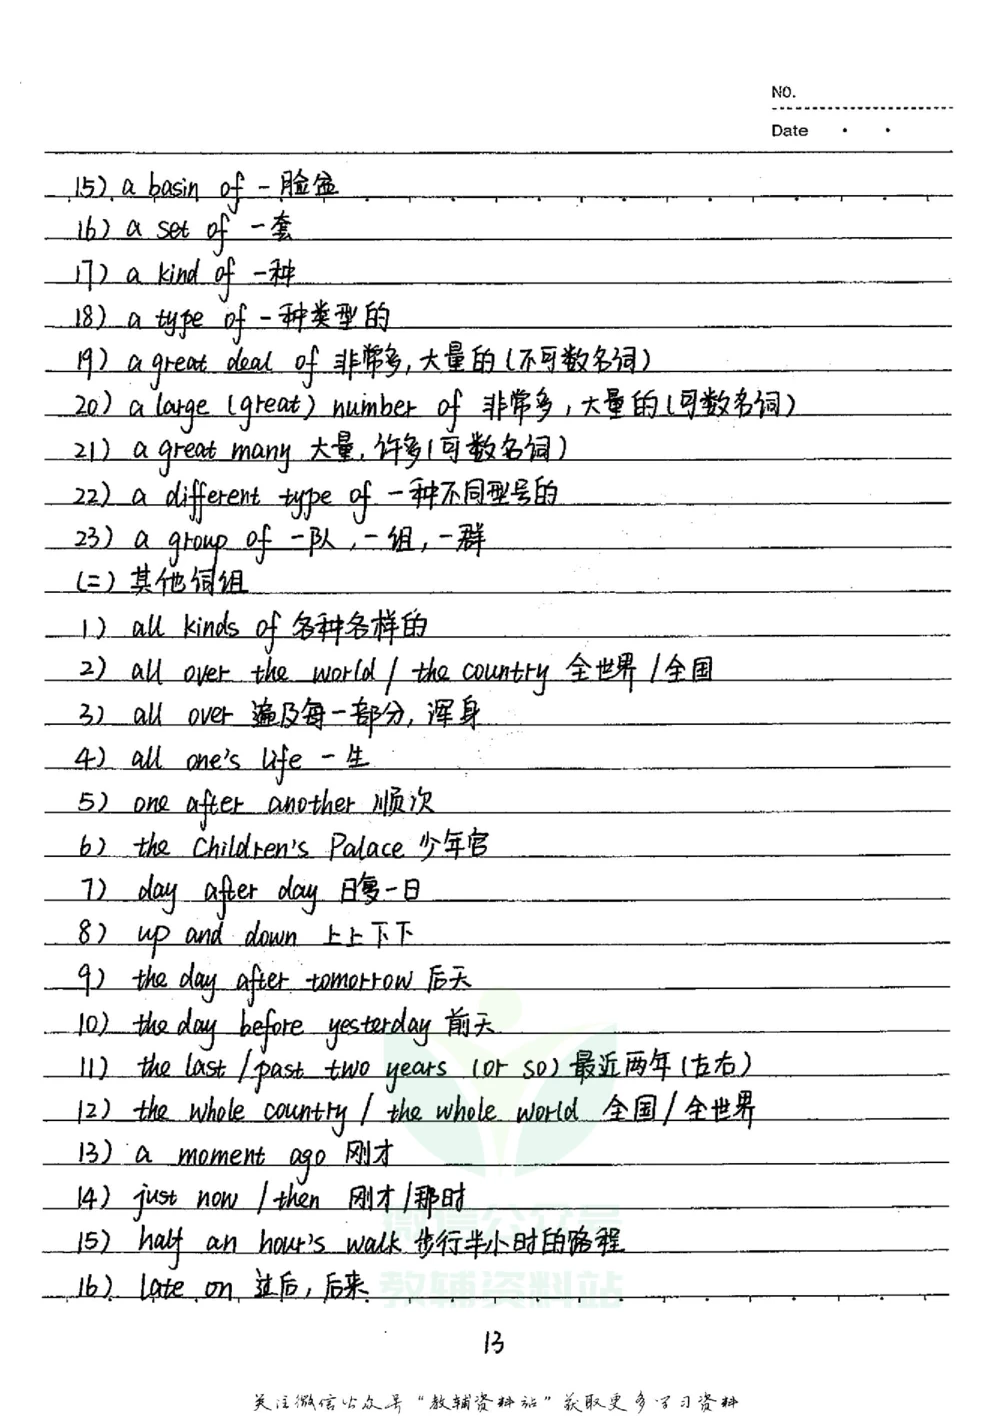 NO.
Date
15) a basin of 一脸盆
16) a set of 一套
17) a kind of 一种
18) a type of 一种类型的
19) a great deal of 非常多,大量的(不可数名词)
20) a large (great) number of 非常多,大量的(可数名词)
21) a great many 大量,许多(可数名词)
22) a different type of 一种不同型号的
23) a group of 一队,一组,一群
(二)其他词组
1) all kinds of 各种各样的
2) all over the world / the country 全世界/全国
3) all over 遍及每一部分,浑身
4) all one's life 一生
5) one after another 顺次
6) the Children's Palace 少年宫
7) day after day 日复一日
8) up and down 上上下下
9) the day after tomorrow 后天
10) the day before yesterday 前天
11) the last / past two years (or so) 最近两年(左右)
12) the whole country / the whole world 全国/全世界
13) a moment ago 刚才
14) just now / then 刚才/那时
15) half an hour's walk 步行半小时的路程
16) late on 过后,后来
微信公众号
教辅资料站
13
关注微信公众号“教辅资料站”获取更多学习资料